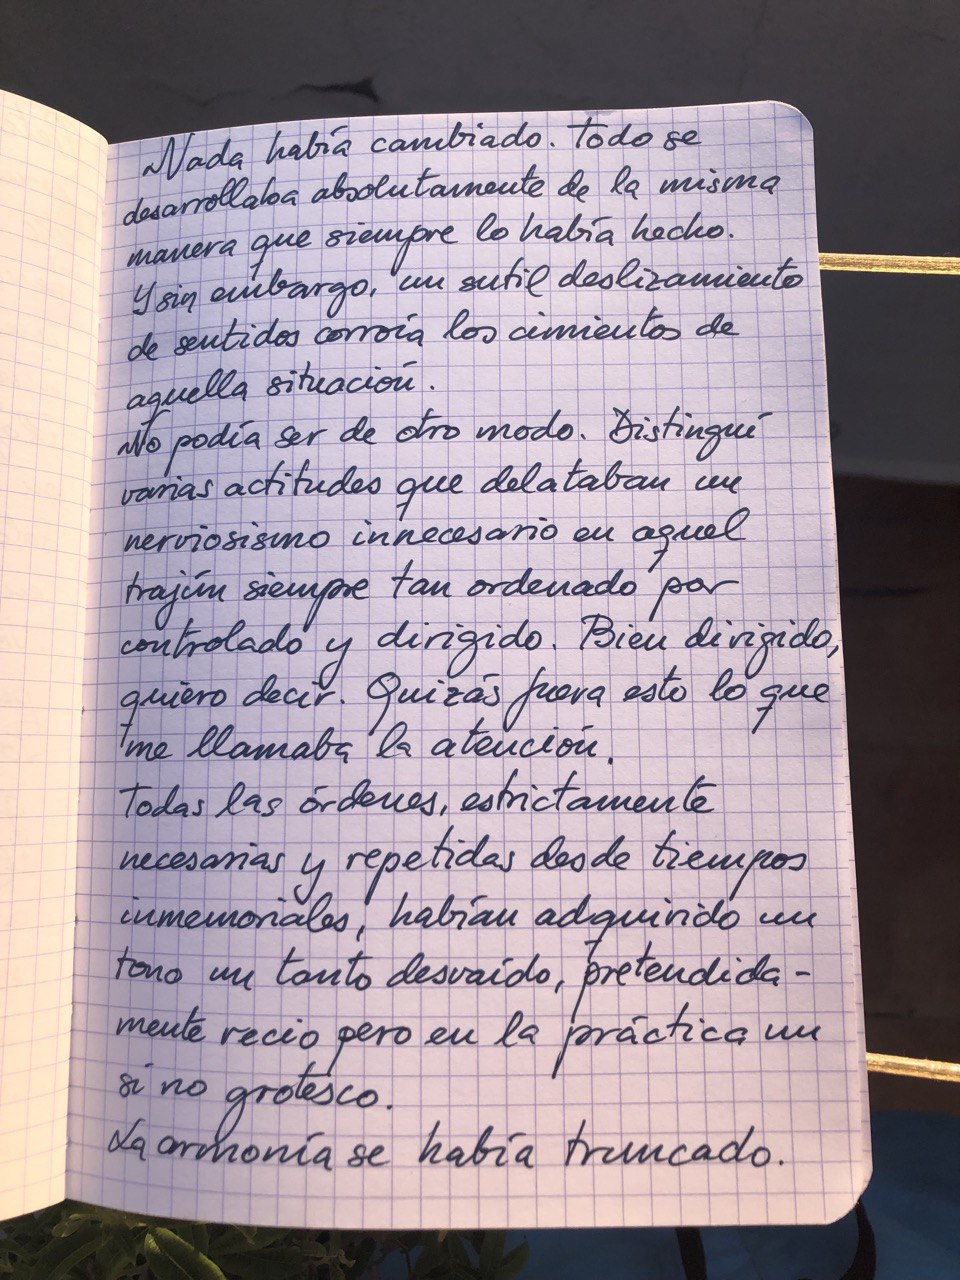 Nada había cambiado. Todo se
desarrollaba absolutamente de la misma
manera que siempre lo había hecho.
Y sin embargo, un sutil deslizamiento
de sentidos corroía los cimientos de
aquella situación.
No podía ser de otro modo. Distinguí
varias actitudes que delataban un
nerviosismo innecesario en aquel
trajín siempre tan ordenado por
controlado y dirigido. Bien dirigido,
quiero decir. Quizás fuera esto lo que
me llamaba la atención.
Todas las órdenes, estrictamente
necesarias y repetidas desde tiempos
inmemoriales, habían adquirido un
tono un tanto desvaído, pretendida-
mente recio pero en la práctica un
si no grotesco.
La armonía se había truncado.